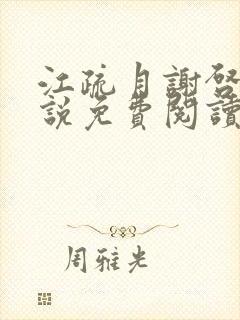 江疏月謝啓
說免費閱讀
周雅光